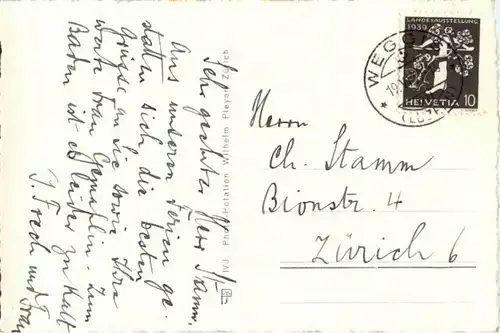 Sehr geehrter Herr Stamm.
Aus unseren Ferien ge-
statten sich die besten
Grüsse an Sie sowie Ihre
werte Frau Gemahlin. Zum
Baden ist es leider zu kalt
J. Frech und Frau
Photo-Rotation Wilhelm Pleyer Zürich
WEGGIS
(LUZERN)
LANDESAUSSTELLUNG
1939
HELVETIA 10
Herrn
Ch. Stamm
Bionstr. 4
Zürich 6